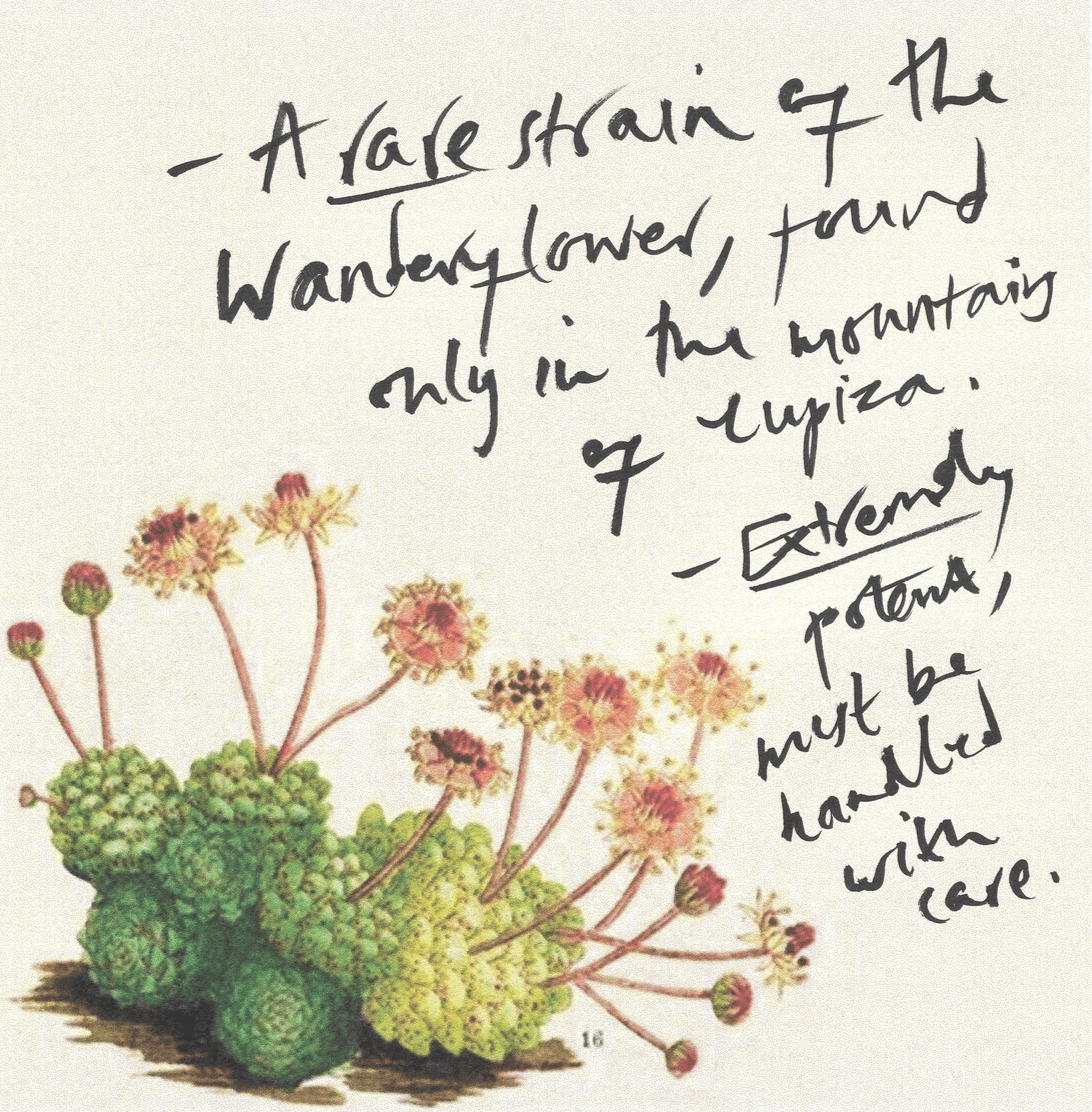 - A rare strain of the
Wanderflower, found
only in the mountains
of
- Extremely
potent,
must be
handled
with
care.
16